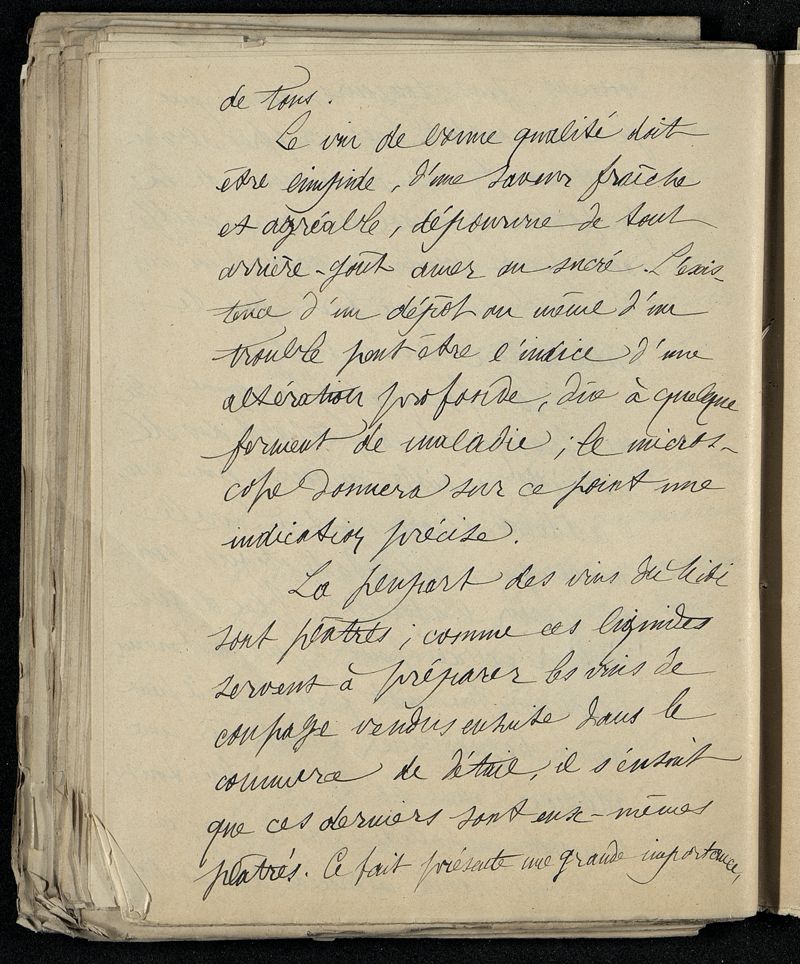 de tous.
Le vin de bonne qualité doit
être limpide, d'une saveur fraîche
et agréable, dépourvue de tout
arrière-goût amer ou sucré. L'exis-
tence d'un dépôt ou même d'un
trouble peut être l'indice d'une
altération profonde, due à quelque
ferment de maladie ; le micros-
cope donnera sur ce point une
indication précise.
La plupart des vins du Midi
sont plâtrés ; comme ces liquides
servent à préparer les vins de
coupage vendus ensuite dans le
commerce de détail, il s'ensuit
que ces derniers sont eux-mêmes
plâtrés. Ce fait présente une grande importance,